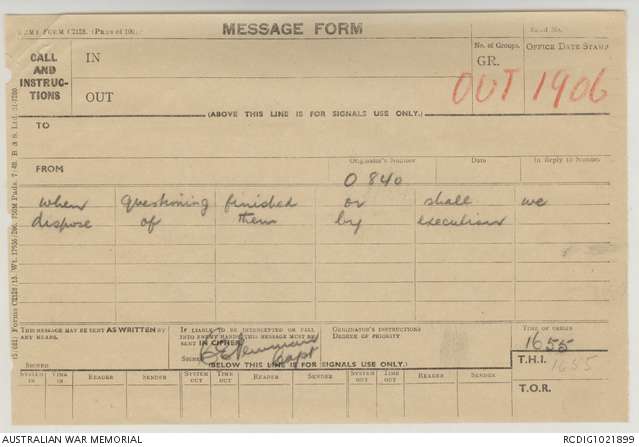 MESSAGE FORM
CALL AND INSTRUC-TIONS
IN
OUT
No. of Groups.
GR.
OFFICE DATE STAMP
OUT 1906
(ABOVE THIS LINE IS FOR SIGNALS USE ONLY.)
TO
FROM
Originator's Number
Date
In Reply to Number
O 840
when questioning finished or shall we
dispose of them by execution
THIS MESSAGE MAY BE SENT AS WRITTEN BY ANY MEANS.
IF LIABLE TO BE INTERCEPTED OR FALL INTO ENEMY HANDS THIS MESSAGE MUST BE SENT IN CIPHER.
ORIGINATOR'S INSTRUCTIONS
DEGREE OF PRIORITY
TIME OF ORIGIN
1655
SIGNED
SIGNED
Capt
(BELOW THIS LINE IS FOR SIGNALS USE ONLY.)
T.H.I. 1655
SYSTEM IN
TIME IN
READER
SENDER
SYSTEM OUT
TIME OUT
READER
SENDER
SYSTEM OUT
TIME OUT
READER
SENDER
T.O.R.
AUSTRALIAN WAR MEMORIAL
RCDIG1021899